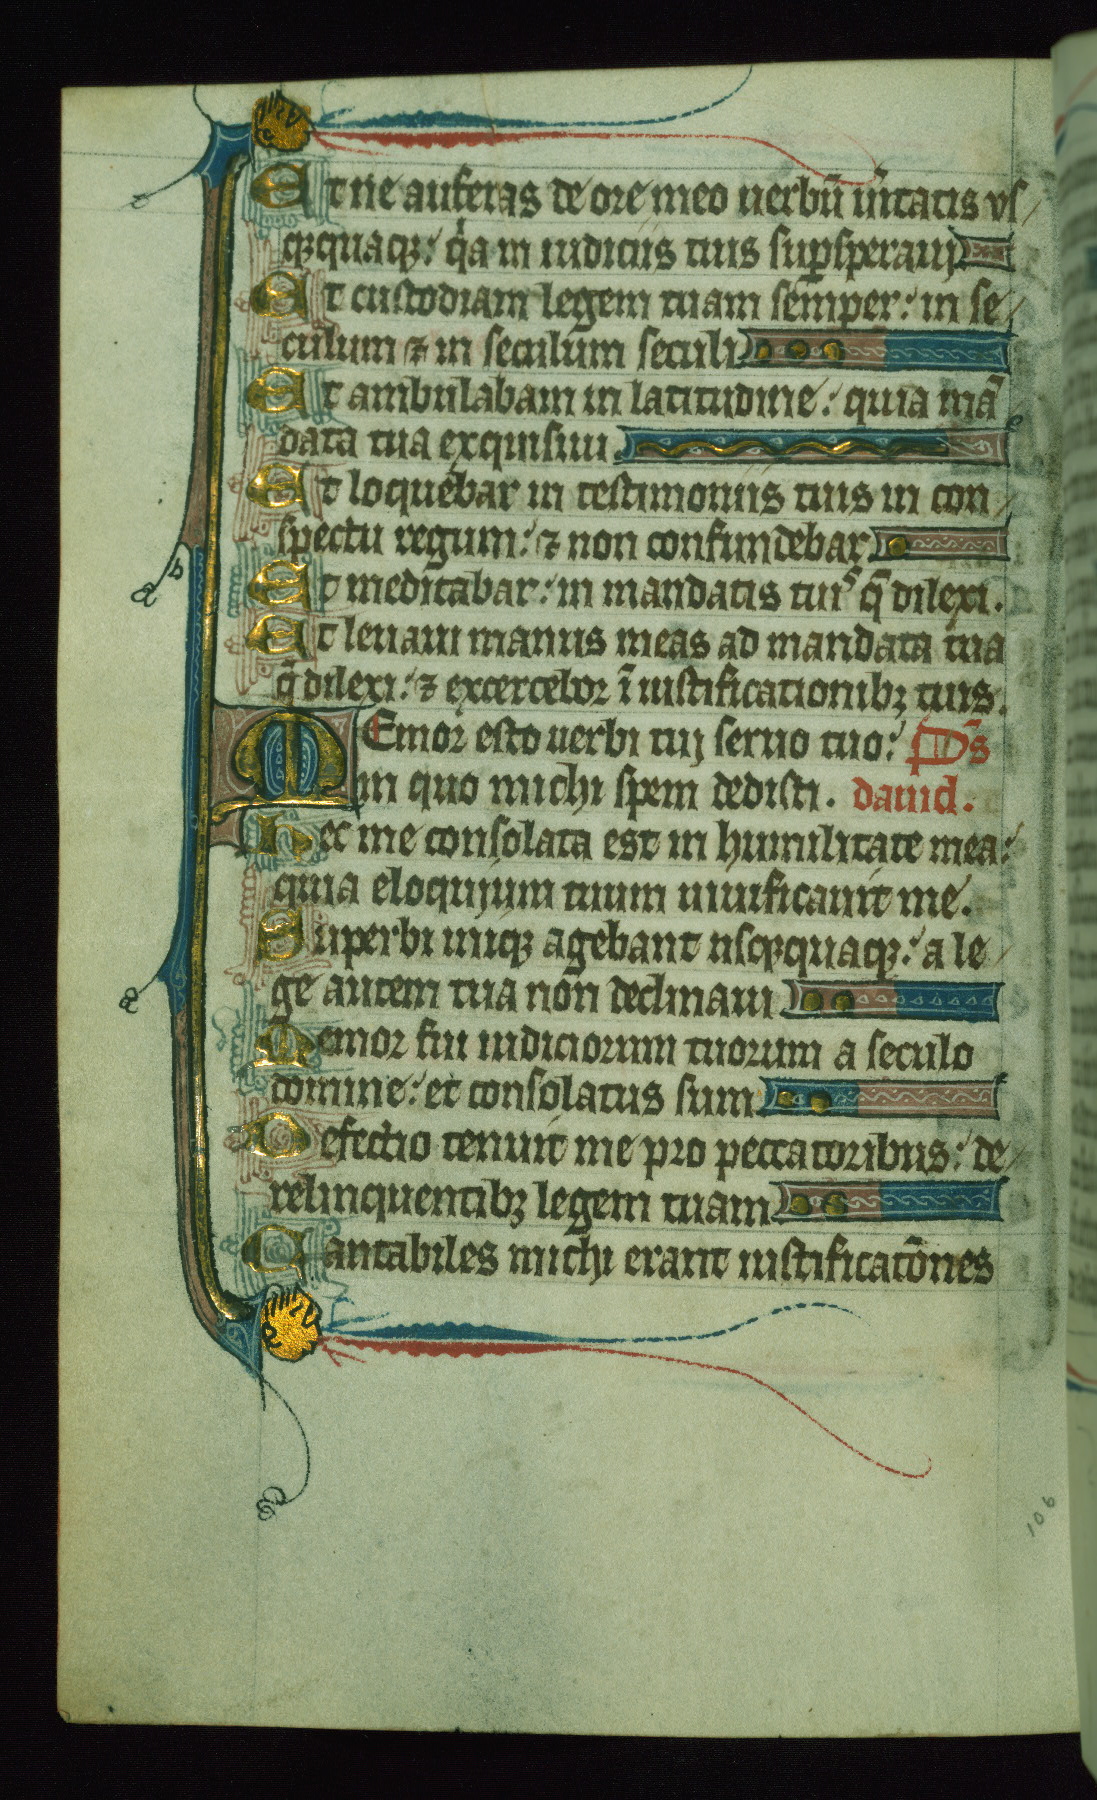 Et ne auferas de ore meo uerbū ūitatis vs
qꝫquaqꝫ: qͣa in iudiciis tuis suꝑsperaui
Et custodiam legem tuam semper: in se
culum ⁊ in seculum seculi
Et ambulabam in latitudine: quia mā
data tua exquisiui.
Et loquebar in testimoniis tuis in con
spectu regum: ⁊ non confundebar.
Et meditabar: in mandatis tuiˢ q̄ dilexi.
Et leuaui manus meas ad mandata tua
q̄ dilexi: ⁊ excercebor ī iustificationibꝫ tuis.
Memor esto uerbi tuj seruo tuo: Ps̄
in quo michi spem dedisti. dauid.
Hec me consolata est in humilitate mea:
quia eloquijum tuum uiuificauit me.
Superbi iniqꝫ agebant usqꝫquaqꝫ: a le
ge autem tua nōn declinaui
Memor fui iudiciorum tuorum a seculo
domine: et consolatus sum
Defectio tenuit me pro peccatoribus: de
relinquentibꝫ legem tuam
Cantabiles michi erant iustificatōnes
106